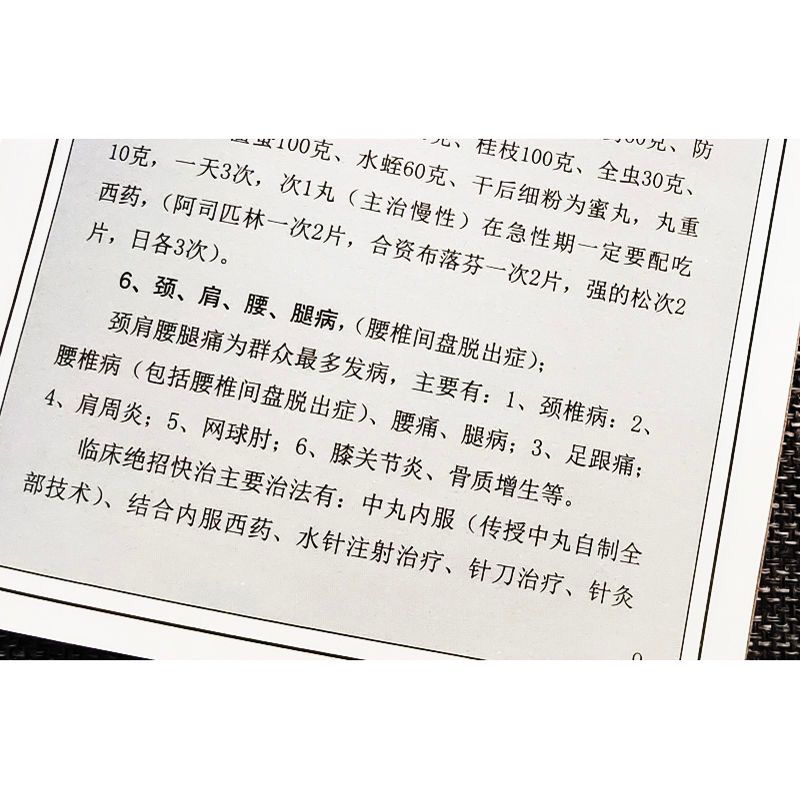 100克、水蛭60克、桂枝100克、全虫30克、防
10克，一天3次，次1丸（主治慢性）在急性期一定要配吃
干后细粉为蜜丸，丸重
西药，（阿司匹林一次2片，合资布落芬一次2片，强的松次2
片，日各3次）。
6、颈、肩、腰、腿病，（腰椎间盘脱出症）；
颈肩腰腿痛为群众最多发病，主要有：1、颈椎病：2、
腰椎病（包括腰椎间盘脱出症）、腰痛、腿病；3、足跟痛；
4、肩周炎；5、网球肘；6、膝关节炎、骨质增生等。
临床绝招快治主要治法有：中丸内服（传授中丸自制全
部技术）、结合内服西药、水针注射治疗、针刀治疗、针灸